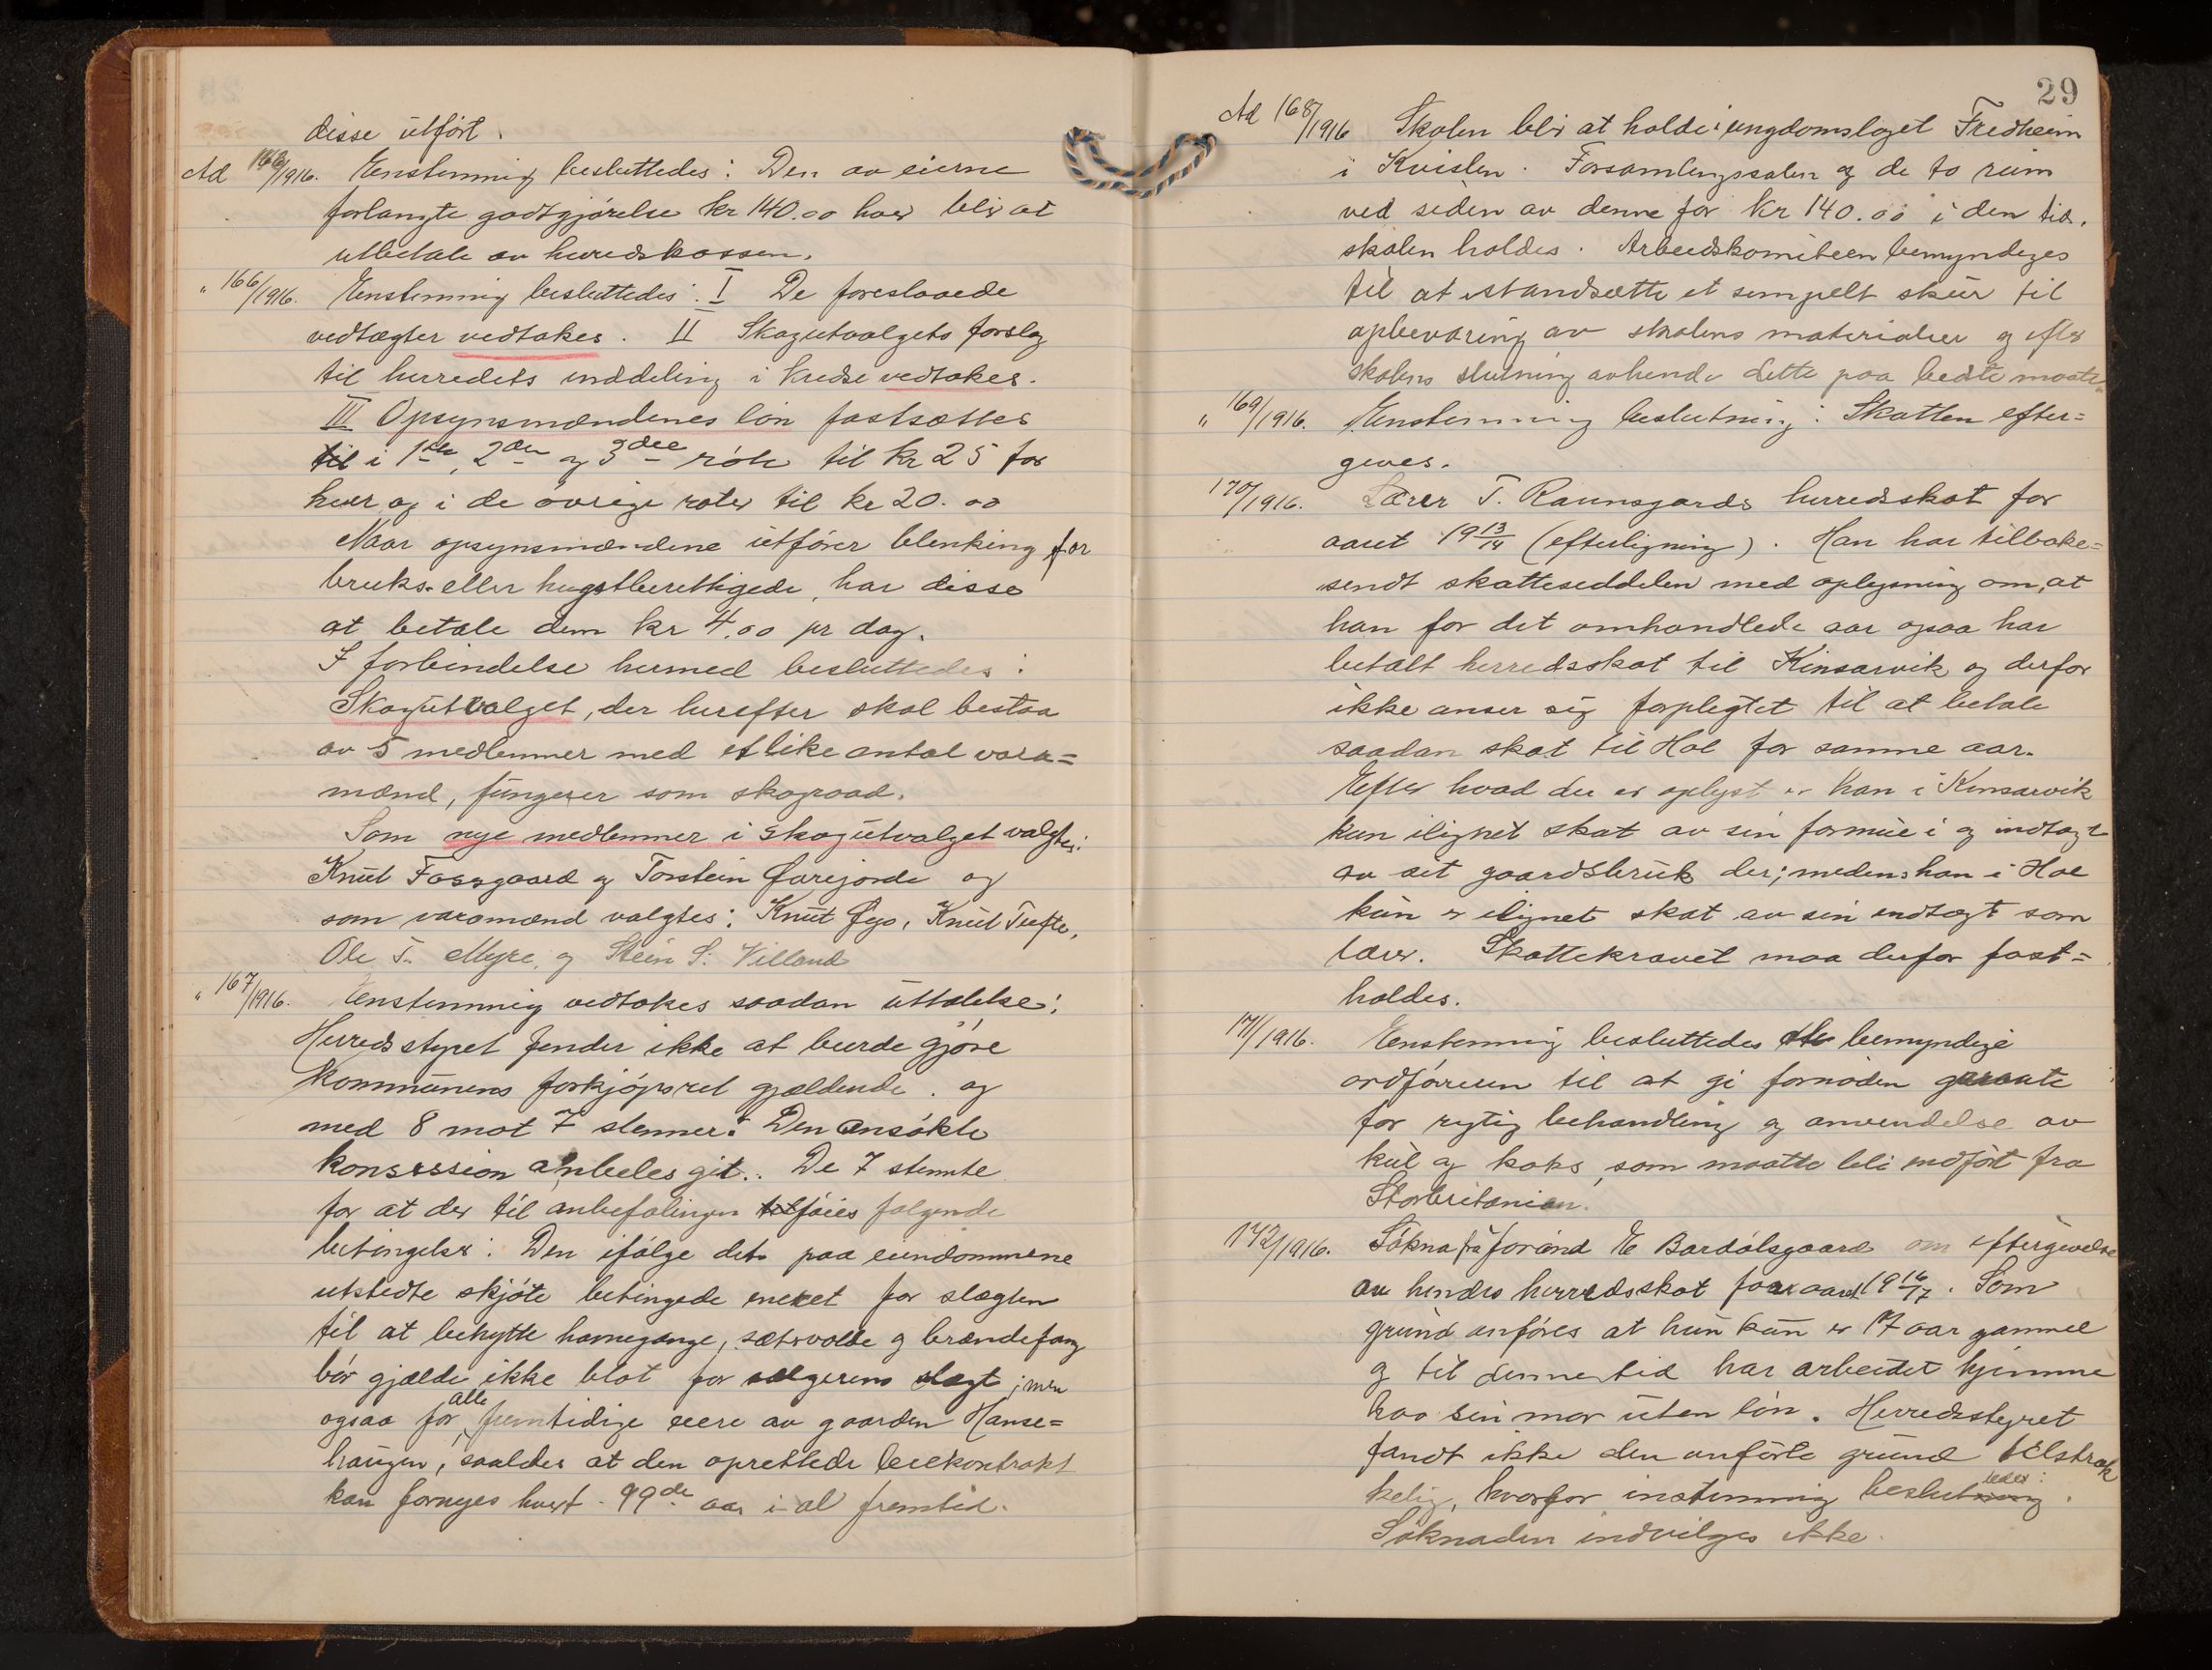 disse utført.
Ad 163/1916. Enstemmig besluttedes: Den av eierne
forlangte godtgjørelse kr 140.00 hver blir at
utbetale av herredskassen.
" 166/1916. Enstemmig besluttedes: I De foreslaaede
vedtægter vedtakes. II Skogutvalgets forslag
til herredets inddeling i kredse vedtakes.
III Opsynsmændenes løn fastsættes
til i 1ste, 2den og 3die rote til kr 25 for
hver og i de øvrige roter til kr 20.00
Naar opsynsmændene utfører blenking for
bruks- eller hugstberettigede, har disse
at betale dem kr 4.00 pr dag.
I forbindelse hermed besluttedes:
Skogutvalget, der herefter skal bestaa
av 5 medlemmer med et like antal vara=
mænd, fungerer som skograad.
Som nye medlemmer i skogutvalget valgtes:
Knut Fossgaard og Torstein Gurejorde og
som varamænd valgtes: Knut Øyo, Knut Tufte,
Ole T. Myre, og Stein S. Villand
" 167/1916. Enstemmig vedtakes saadan uttalelse:
Herredsstyret finder ikke at burde gjøre
kommunens forkjøpsret gjældende. og
med 8 mot 7 stemmer: Den ansøkte
konsession anbefales git. De 7 stemte
for at der til anbefalingen tilføies følgende
betingelse: Den ifølge det paa eiendommene
utstedte skjøte betingede eneret for slægten
til at benytte havnegange, sætervolle og brændefang
bør gjælde ikke blot for sælgerens slægt; men
ogsaa for alle fremtidige eiere av gaarden Hanse=
haugen, saaledes at den oprettede leiekontrakt
kan fornyes hvert 99de aar i al fremtid.
29
Ad 168/1916 Skolen blir at holde i ungdomslaget Fredheim
i Kvislen. Forsamlingssalen og de to rum
ved siden av denne for kr 140.00 i den tid.
skolen holdes. Arbeidskomiteen bemyndiges
til at istandsætte et simpelt skur til
opbevaring av skolens materialier og efter
skolens slutning avhende dette paa bedste maate.
" 169/1916. Enstemmig beslutning: Skatten efter=
gives.
170/1916. Lærer T. Raunsgards herredsskat for
aaret 1913/14 (efterligning). Han har tilbake=
sendt skatteseddelen med oplysning om, at
han for det omhandlede aar ogsaa har
betalt herredsskat til Kinsarvik og derfor
ikke anser sig forpligtet til at betale
saadan skat til Hol for samme aar.
Efter hvad der er oplyst er han i Kinsarvik
kun ilignet skat av sin formue i og indtægt
av sit gaardsbruk der; medens han i Hol
kun er ilignet skat av sin indtægt som
lærer. Skattekravet maa derfor fast=
holdes.
171/1916. Enstemmig besluttedes at bemyndige
ordføreren til at gi fornøden garante
for rigtig behandling og anvendelse av
kul og koks, som maatte bli indført fra
Storbritanien.
172/1916. Søknad fra Jorand E Bardølsgaard om eftergivelse
av hendes herredsskat for aaret 1916/17. Som
grund anføres at hun kun er 17 aar gammel
og til denne tid har arbeidet hjemme
hos sin mor uten løn. Herredsstyret
fandt ikke den anførte grund tilstræk
kelig, hvorfor instemmig beslutning tedes:
Søknaden indvilges ikke.